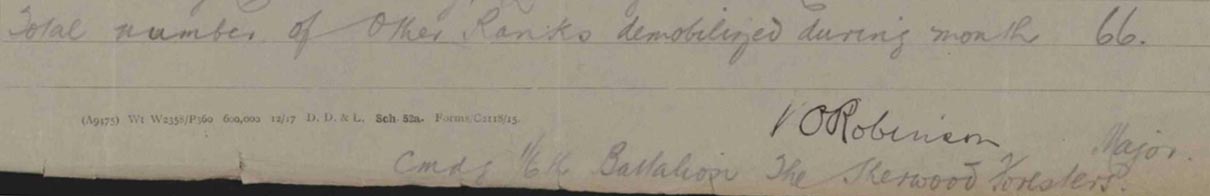 Total number of Other Ranks demobilized during month 66.
(A9175) Wt W2358/P360 600,000 12/17 D. D. & L. Sch. 52a. Forms/C2118/15.
V O Robinson Major.
Cmdg 1/6th Battalion The Sherwood Foresters